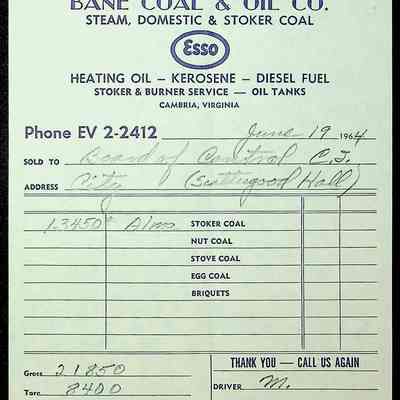 BANE COAL & OIL CO.
STEAM, DOMESTIC & STOKER COAL
Esso
HEATING OIL – KEROSENE – DIESEL FUEL
STOKER & BURNER SERVICE — OIL TANKS
CAMBRIA, VIRGINIA
Phone EV 2-2412 June 19 1964
SOLD TO Board of Control C.I.
ADDRESS City (Scattergood Hall)
13450# STOKER COAL
NUT COAL
STOVE COAL
EGG COAL
BRIQUETS
Gross 21850
Tare 8400
THANK YOU — CALL US AGAIN
DRIVER M.